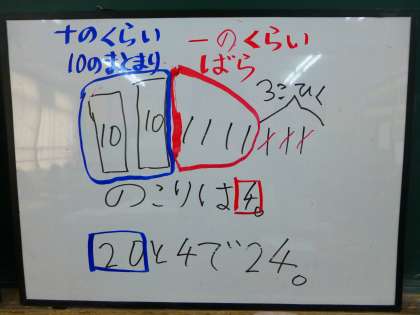 十のくらい 一のくらい
10のまとまり ばら
3こひく
10 10
のこりは4。
20と4で24。